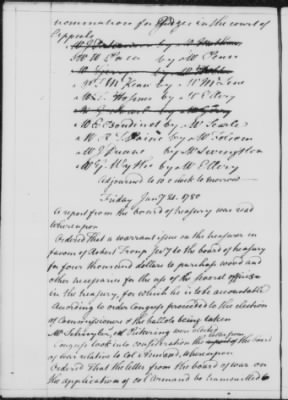 nomination for Judges in the court of
Appeals
Mr W Paca by Mr Jones
Mr T McKean by Mr McLene
Mr T. Hosmer by Mr Ellery
Mr E Boudinot by Mr Searle
Mr R T Paine by Mr Folsom
Mr J Duane by Mr Livingston
Mr G Wythe by Mr Ellery
Adjourned to 10 o Clock to morrow
Friday Jany 21. 1780
A report from the board of treasury was read
whereupon
Ordered That a warrant issue on the treasurer in
favour of Robert Troup Secy to the board of treasury
for four thousand dollars to purchase wood and
other necessaries for the use of the several offices
in the treasury, for which he is to be accountable
According to order Congress proceeded to the election
of Commissioners & the ballots being taken
Mr Schuyler, Mr Pickering were elected
Congress took into consideration the letter from the board
of war relative to Col Armand, whereupon
Ordered That the letter from the board of war on
the application of col Armand be transmitted to